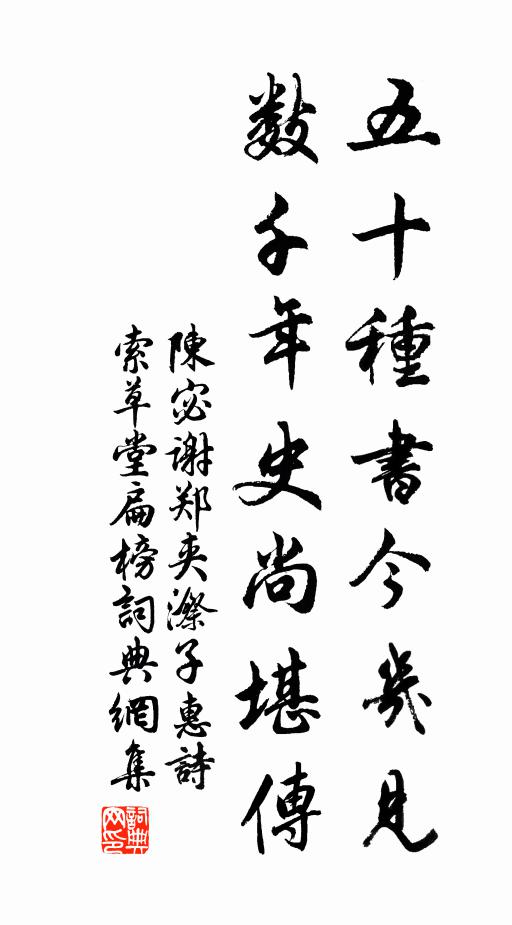 五十種書今幾見
数千年史尚堪傳
陳宓谢郑夹漈子惠詩
索草堂扁榜詞典網集
詞典网印